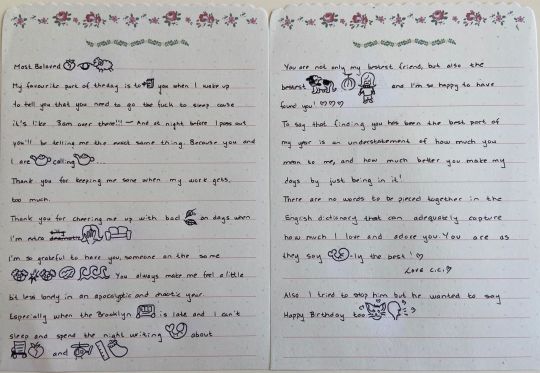 Most Beloved
My favourite part of the day is to you when I wake up
to tell you that you need to go the fuck to sleep cause
it's like 3am over there!!! — And at night before I pass out
you'll be telling me the exact same thing. Because you and
I are calling ...
Thank you for keeping me sane when my work gets
too much.
Thank you for cheering me up with bad on days when
I'm extra
I'm so grateful to have you, someone on the same
You always make me feel a little
bit less lonely in an apocalyptic and chaotic year.
Especially when the Brooklyn is late and I can't
sleep and spend the night writing about
and
You are not only my bestest friend, but also the
bestest and I'm so happy to have
found you! ♡♡♡
To say that finding you has been the best part of
my year is an understatement of how much you
mean to me, and how much better you make my
days by just being in it!
There are no words to be pieced together in the
English dictionary that can adequately capture
how much I love and adore you. You are as
they say -ly the best! ♡
Love c.c. ♡
Also I tried to stop him but he wanted to say
Happy Birthday too